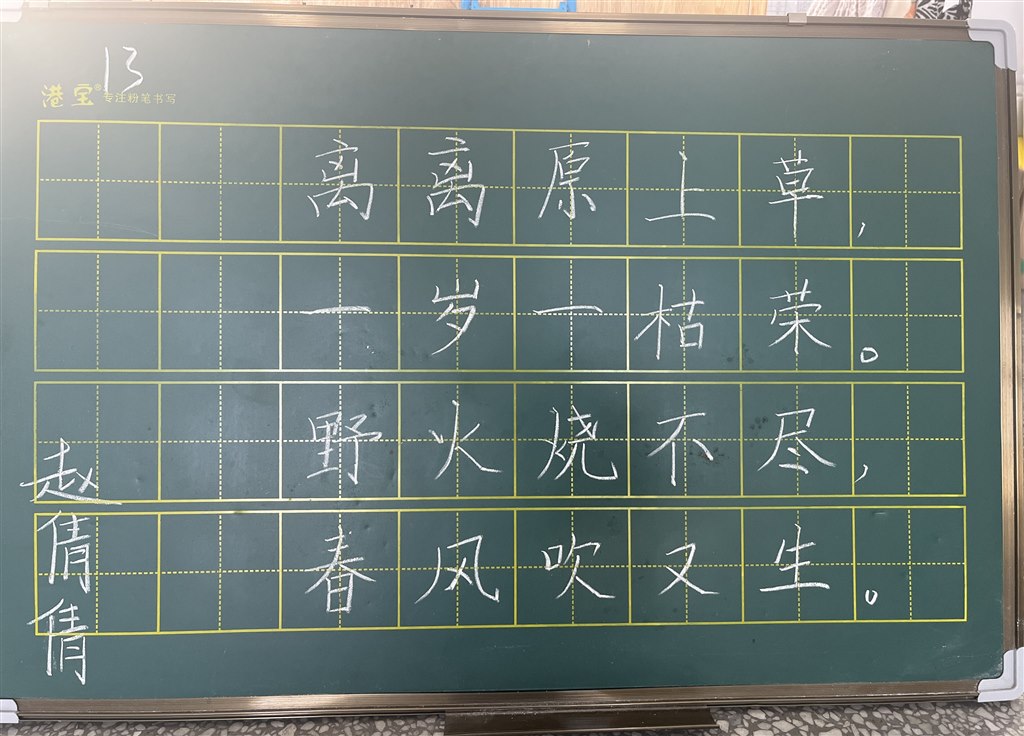 13
港宝® 专注粉笔书写
离离原上草,
一岁一枯荣。
野火烧不尽,
春风吹又生。
赵倩倩